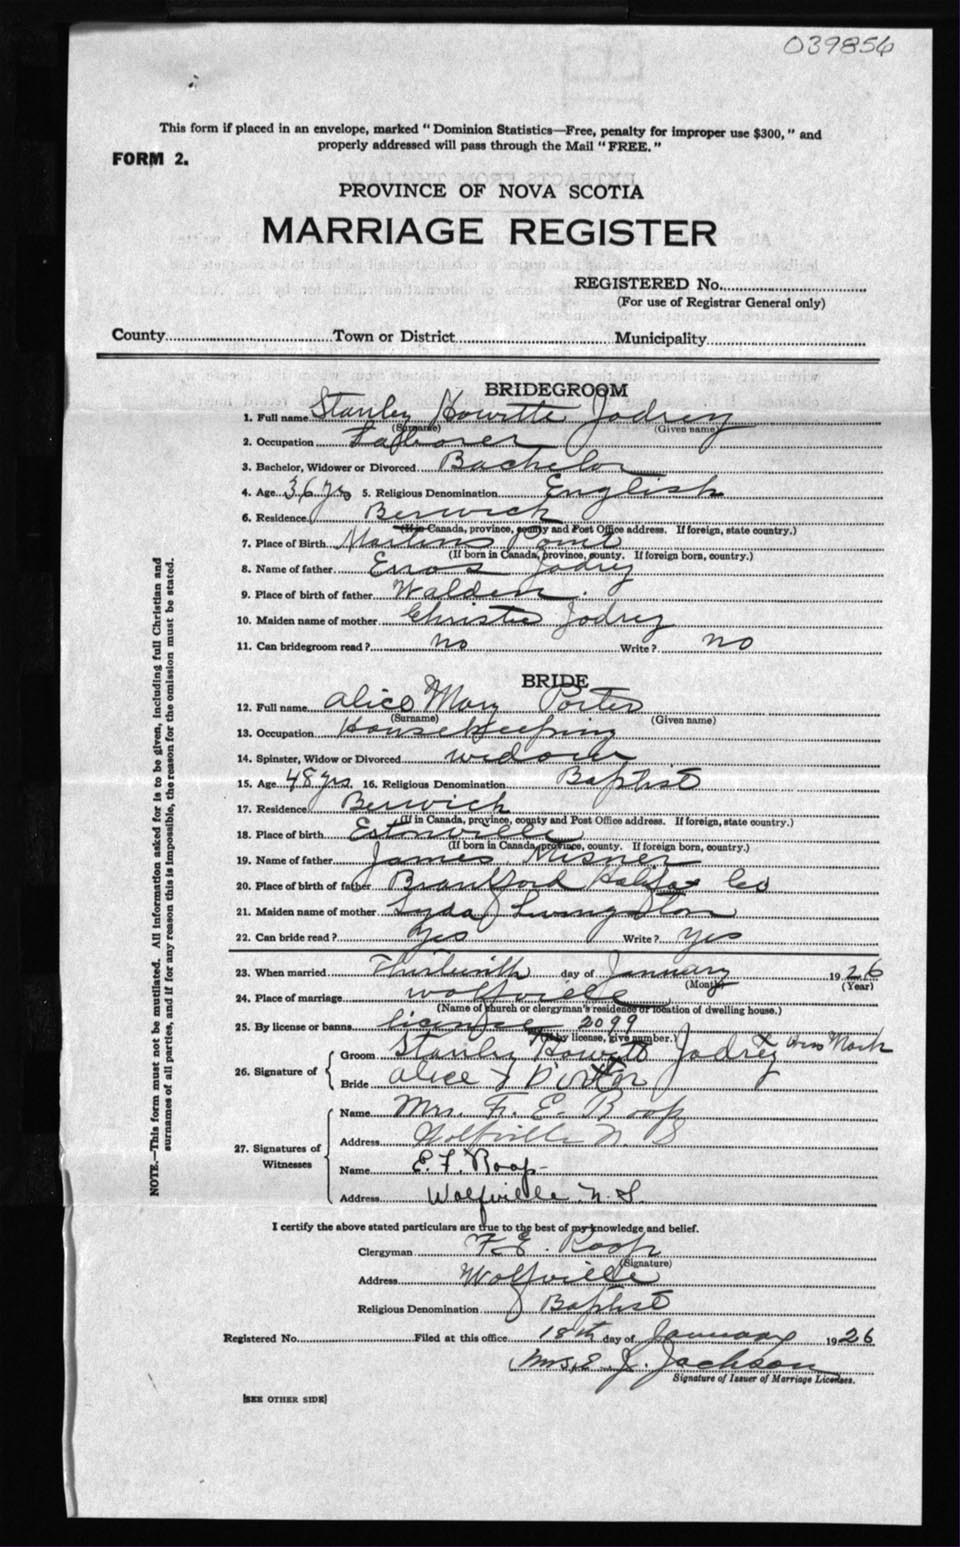 039856
This form if placed in an envelope, marked "Dominion Statistics—Free, penalty for improper use $300," and
properly addressed will pass through the Mail "FREE."
FORM 2.
PROVINCE OF NOVA SCOTIA
MARRIAGE REGISTER
REGISTERED No.
(For use of Registrar General only)
County Town or District Municipality
BRIDEGROOM
1. Full name Stanley Howitte Jodrey
(Surname) (Given name)
2. Occupation Labourer
3. Bachelor, Widower or Divorced Bachelor
4. Age 36 yrs 5. Religious Denomination English
6. Residence Berwick
(If in Canada, province, county and Post Office address. If foreign, state country.)
7. Place of Birth Martins Point
(If born in Canada, province, county. If foreign born, country.)
8. Name of father Enos Jodrey
9. Place of birth of father Walden
10. Maiden name of mother Christie Jodrey
11. Can bridegroom read? no Write? no
BRIDE
12. Full name Alice Mary Porter
(Surname) (Given name)
13. Occupation Housekeeping
14. Spinster, Widow or Divorced widow
15. Age 48 yrs. 16. Religious Denomination Baptist
17. Residence Berwick
(If in Canada, province, county and Post Office address. If foreign, state country.)
18. Place of birth Estonville
(If born in Canada, province, county. If foreign born, country.)
19. Name of father James Misner
20. Place of birth of father Brantford Halifax Co
21. Maiden name of mother Lyda Livingston
22. Can bride read? Yes Write? yes
23. When married Thirteenth day of January 1926
(Month) (Year)
24. Place of marriage Wolfville
(Name of church or clergyman's residence or location of dwelling house.)
25. By license or banns license 2099
(If by license, give number.)
26. Signature of Groom Stanley Howitt Jodrey x His Mark
Bride Alice Porter
27. Signatures of Witnesses
Name Mrs. F. E. Roop
Address Wolfville N S
Name E. F. Roop
Address Wolfville N. S.
I certify the above stated particulars are true to the best of my knowledge and belief.
Clergyman F. E. Roop
(Signature)
Address Wolfville
Religious Denomination Baptist
Registered No. Filed at this office 18th day of January 1926
Mrs. E. J. Jackson
Signature of Issuer of Marriage Licenses.
[SEE OTHER SIDE]
NOTE.—This form must not be mutilated. All information asked for is to be given, including full Christian and
surnames of all parties, and if for any reason this is impossible, the reason for the omission must be stated.